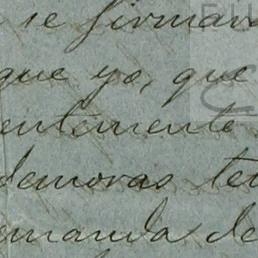 se firman
que yo, que
entemente
demoras te
emanda de